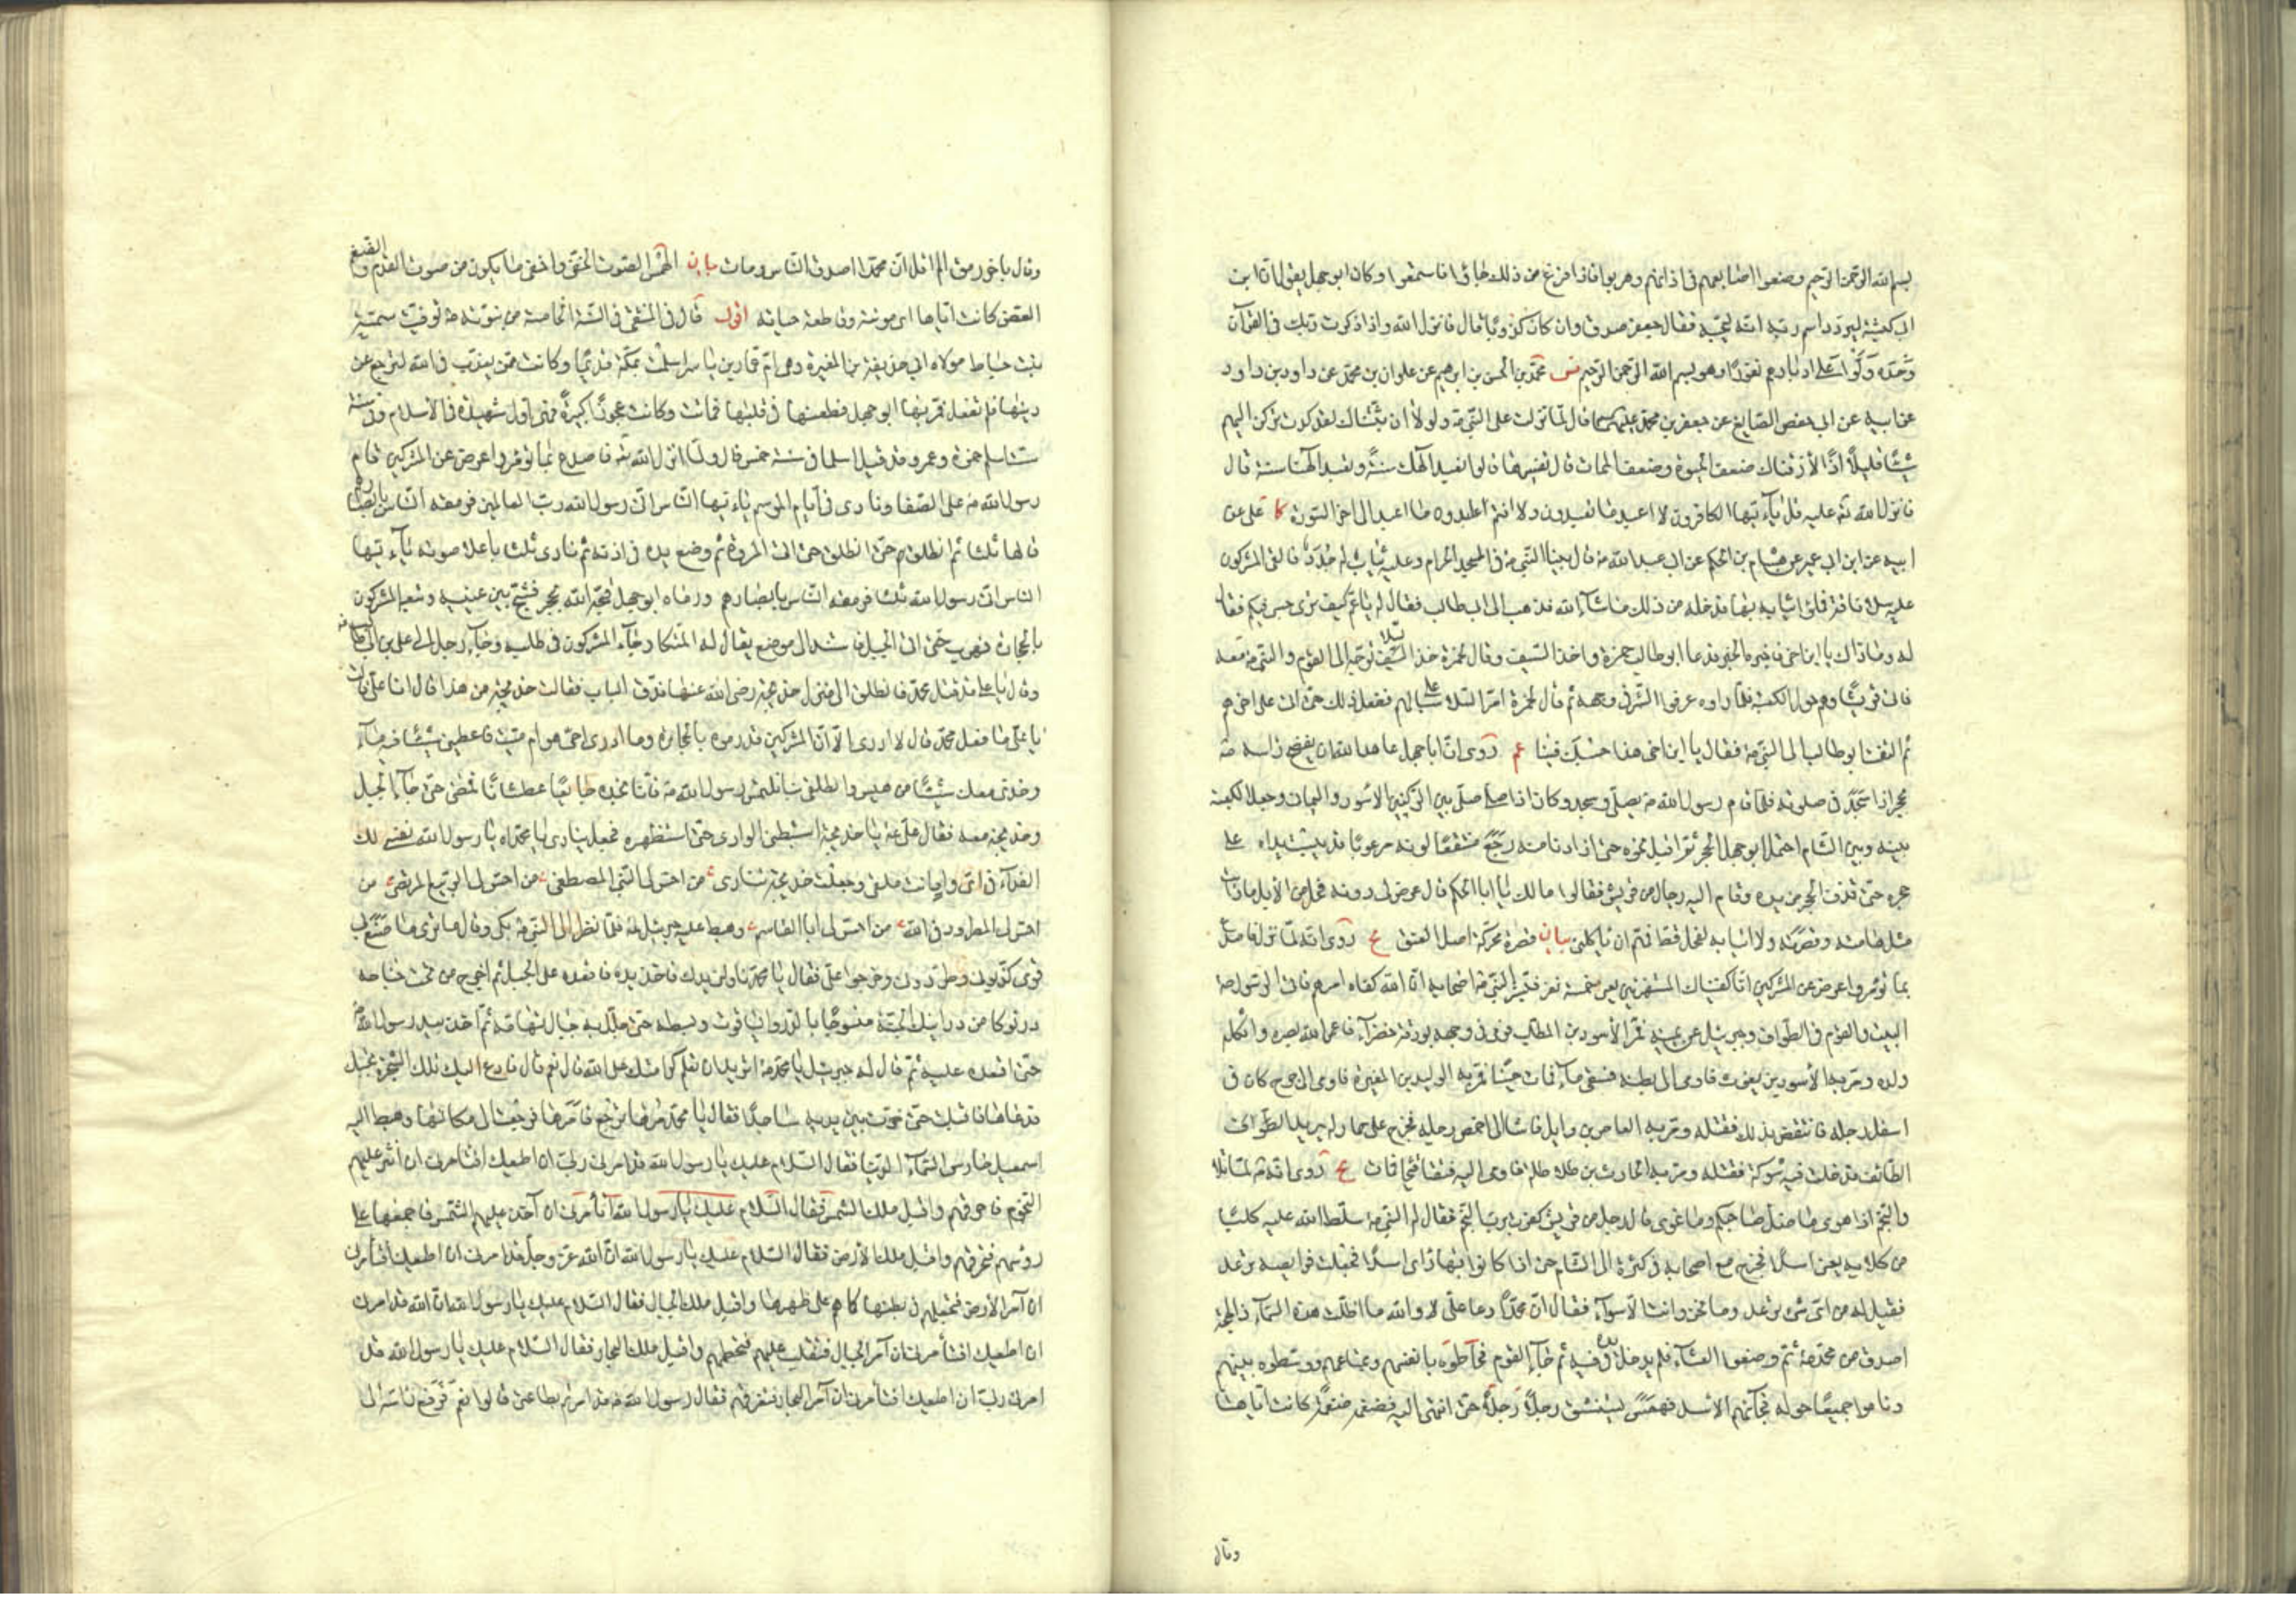 بسم الله الرحمن الرحيم وضعوا اصابعهم فى اذانهم وهربوا فاذا فرغ من ذلك جاؤا فاستمعوا وكان ابو جهل يقول ان ابن
ابى كبشة ليردد اسم ربه انه ليحبه فقال جعفر صدق وان كان كذوبا قال فانزل الله واذا ذكرت ربك فى القرآن
وحده ولوا على ادبارهم نفورا وهو بسم الله الرحمن الرحيم محمد بن الحسن بن ابرهيم عن علوان بن محمد عن داود بن داود
عن ابيه عن ابى حفص الصايغ عن جعفر بن محمد عليهما قال لما نزلت على النبى ص ولولا ان ثبتناك لقد كدت تركن اليهم
شيئا قليلا اذا لاذقناك ضعف الحيوة وضعف الممات قال تفسيرها قالوا نعبد الهك سنة وتعبد الهنا سنة قال
فانزل الله عليه قل يا ايها الكافرون لا اعبد ما تعبدون ولا انتم عابدون ما اعبد الى اخر السورة كا على عن
ابيه عن ابن ابى عمير عن هشام بن الحكم عن ابى عبد الله ع قال بينا النبى ص فى المسجد الحرام وعليه ثياب له جدد فالقى المشركون
عليه سلا ناقة فملؤا ثيابه بها فدخله من ذلك ما شاء الله فذهب الى ابى طالب فقال له يا عم كيف ترى حسبى فيكم فقال
له وما ذاك يا ابن اخى فاخبره الخبر فدعا ابو طالب حمزة واخذ السيف وقال لحمزة خذ السلا ثم توجه الى القوم والنبى ص معه
فاتى قريشا وهم حول الكعبة فلما راوه عرفوا الشر فى وجهه ثم قال لحمزة امر السلا على سبالهم ففعل ذلك حتى اتى على اخرهم
ثم التفت ابو طالب الى النبى ص فقال يا ابن اخى هذا حسبك فينا عم روى ان ابا جهل عاهد الله ان يفضخ راسه ص
بحجر اذا سجد فى صلوته فلما قام رسول الله ص يصلى وسجد وكان اذا صلى صلى بين الركنين الاسود واليمانى وجعل الكعبة
بينه وبين الشام احتمل ابو جهل الحجر ثم اقبل نحوه حتى اذا دنا منه رجع منتقعا لونه مرعوبا قد يبست يداه على
حجره حتى قذف الحجر من يده وقام اليه رجال من قريش فقالوا مالك يا ابا الحكم قال عرض لى دونه فحل من الابل ما رايت
مثل هامته وقصرته ولا انيابه لفحل قط فهم ان ياكلنى بيان قصرة محركة اصل العنق يج روى انه لما نزل فاصدع
بما تؤمر واعرض عن المشركين انا كفيناك المستهزئين يعنى خمسة نفر فبشر النبى ص اصحابه ان الله كفاه امرهم فاتى الرسول ص
البيت والقوم فى الطواف وجبرئيل عن يمينه فمر الاسود بن المطلب فرمى فى وجهه بورقة خضراء فاعمى الله بصره واثكله
ولده ومر به الاسود بن يغوث فاومى الى بطنه فسقى ماء فمات حبنا فمر به الوليد بن المغيرة فاومى الى جرح كان فى
اسفل رجله فانتقض بذلك فقتله ومر به العاص بن وايل فاشار الى اخمص رجله فخرج على حمار له يريد الطوايف
الطائف فدخلت فيه شوكة فقتلته ومر به الحارث بن طلاطلة فاومى اليه فتقيا قيحا فمات يج روى انه ص لما تلا
والنجم اذا هوى ما ضل صاحبكم وما غوى قال رجل من قريش كفرت برب النجم فقال له النبى ص سلط الله عليه كلبا
من كلابه يعنى اسدا فخرج مع اصحابه فى كثرة الى الشام حتى اذا كانوا بها راى اسدا فجعلت فرايصه ترعد
فقيل له من اى شئ ترعد وما نحن وانت الا سواء فقال ان محمدا دعا على لا والله ما اظلت هذه السماء ذا لهجة
اصدق من محمد ص ثم وضعوا العشاء فلم يدخل يده فيه ثم جاء القوم فحاطوه بانفسهم وبمتاعهم ووسطوه بينهم
وناموا جميعا حوله فجاءهم الاسد فهمس يستنشق رجلا رجلا حتى انتهى اليه فضغمه ضغمة كانت اياها
وقال
وقال باخر رمق الم اقل ان محمدا اصدق الناس ومات بيان الهمس الصوت الخفى واخفى ما يكون من صوت القدم والضغم
العض كانت اياها اى موتته وقاطعة حياته اقول قال فى المنتقى فى السنة الخامسة من نبوته ص توفيت سمية
بنت خياط مولاة ابى حذيفة بن المغيرة وهى ام عمار بن ياسر اسلمت بمكة قديما وكانت ممن يعذب فى الله لترجع عن
دينها فلم تفعل فمر بها ابو جهل فطعنها فى قلبها فماتت وكانت عجوزا كبيرة فهى اول شهيدة فى الاسلام وفى سنة
ست اسلم حمزة وعمر وقد قيل اسلما فى سنة خمس قال ولما انزل الله تعالى فاصدع بما تؤمر واعرض عن المشركين قام
رسول الله ص على الصفا ونادى فى ايام الموسم يا ايها الناس انى رسول الله رب العالمين فرمقه الناس بابصارهم
قالها ثلثا ثم انطلق حتى اتى المروة ثم وضع يده فى اذنه ثم نادى ثلثا باعلا صوته يا ايها
الناس انى رسول الله ثلثا فرمقه الناس بابصارهم ورماه ابو جهل قبحه الله بحجر فشج بين عينيه وتبعه المشركون
بالحجارة فهرب حتى اتى الجبل فاستند الى موضع يقال له المتكا وجاء المشركون فى طلبه وجاء رجل الى على بن ابى طالب
وقال يا على قد قتل محمد فانطلق الى منزل خديجة رضى الله عنها فدق الباب فقالت خديجة من هذا قال انا على قالت
يا على ما فعل محمد قال لا ادرى الا ان المشركين قد رموه بالحجارة وما ادرى احى هو ام ميت فاعطينى شيئا فيه ماء
وخذى معك شيئا من هيس وانطلقى بنا نلتمس رسول الله ص فانا نجده جايعا عطشانا فمضى حتى جاز الجبل
وخديجة معه فقال على ع يا خديجة استبطنى الوادى حتى استظهره فجعل ينادى يا محمداه يا رسول الله نفسى لك
الفداء فى اى واد انت ملقى وجعلت خديجة تنادى من احس لى النبى المصطفى من احس لى الربيع المرتضى من
احس لى المطرود فى الله من احس لى ابا القاسم وهبط عليه جبرئيل فلما نظر اليه النبى ص بكى وقال ما ترى ما صنع بى
قومى كذبونى وطردونى وخرجوا على فقال يا محمد ناولنى يدك فاخذ يده فاقعده على الجبل ثم اخرج من تحت جناحه
درنوكا من درانيك الجنة منسوجا بالدر والياقوت وبسطه حتى جلل به جبال تهامة ثم اخذ بيد رسول الله ص
حتى اقعده عليه ثم قال له جبرئيل يا محمد اتريد ان تعلم كرامتك على الله قال نعم قال فادع اليك تلك الشجرة تجبك
فدعاها فاقبلت حتى خرت بين يديه ساجدا فقال يا محمد مرها ترجع فامرها فرجعت الى مكانها وهبط اليه
اسمعيل حارس السماء الدنيا فقال السلام عليك يا رسول الله قد امرنى ربى ان اطيعك افتامرنى ان انثر عليهم
النجوم فاحرقهم واقبل ملك الشمس فقال السلام عليك يا رسول الله اتامرنى ان اخذ عليهم الشمس فاجمعها على
رؤسهم فتحرقهم واقبل ملك الارض فقال السلام عليك يا رسول الله ان الله عز وجل قد امرنى ان اطيعك افتامرنى
ان آمر الارض فتجعلهم فى بطنها كما هم على ظهرها واقبل ملك الجبال فقال السلام عليك يا رسول الله ان الله قد امرنى
ان اطيعك افتامرنى ان آمر الجبال فتنقلب عليهم فتحطمهم واقبل ملك البحار فقال السلام عليك يا رسول الله قد
امرنى ربى ان اطيعك افتامرنى ان آمر البحار فتغرقهم فقال رسول الله ص قد امرتم بطاعتى قالوا نعم فرفع راسه الى